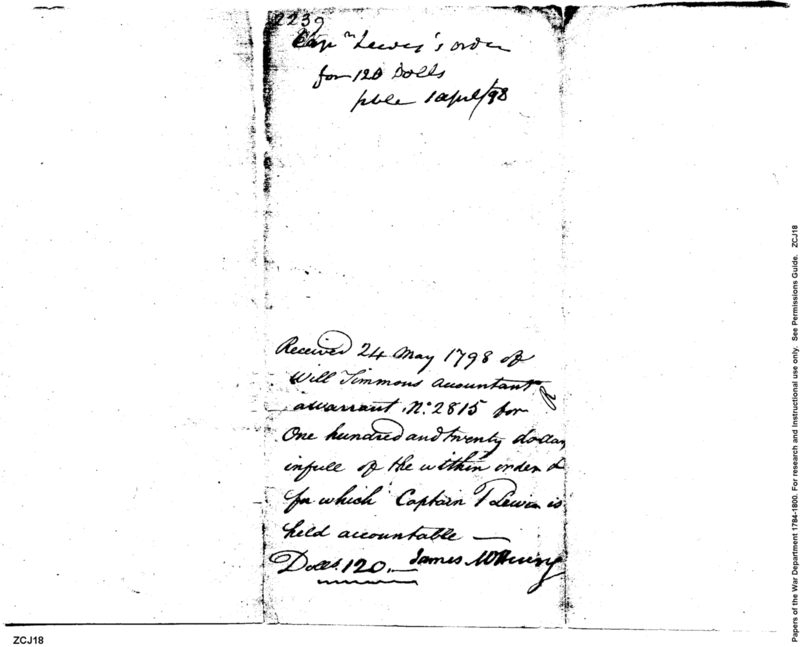 2239
Capn Lewis's order
for 120 Dolls
pble 1 april/98
Received 24 May 1798 of
Will Simmons accountant
a warrant No. 2815 for
One hundred and twenty dollars
in full of the within order &
for which Captain T Lewis is
held accountable —
Dolls. 120. — James McHenry
ZCJ18
Papers of the War Department 1784-1800. For research and instructional use only. See Permissions Guide. ZCJ18